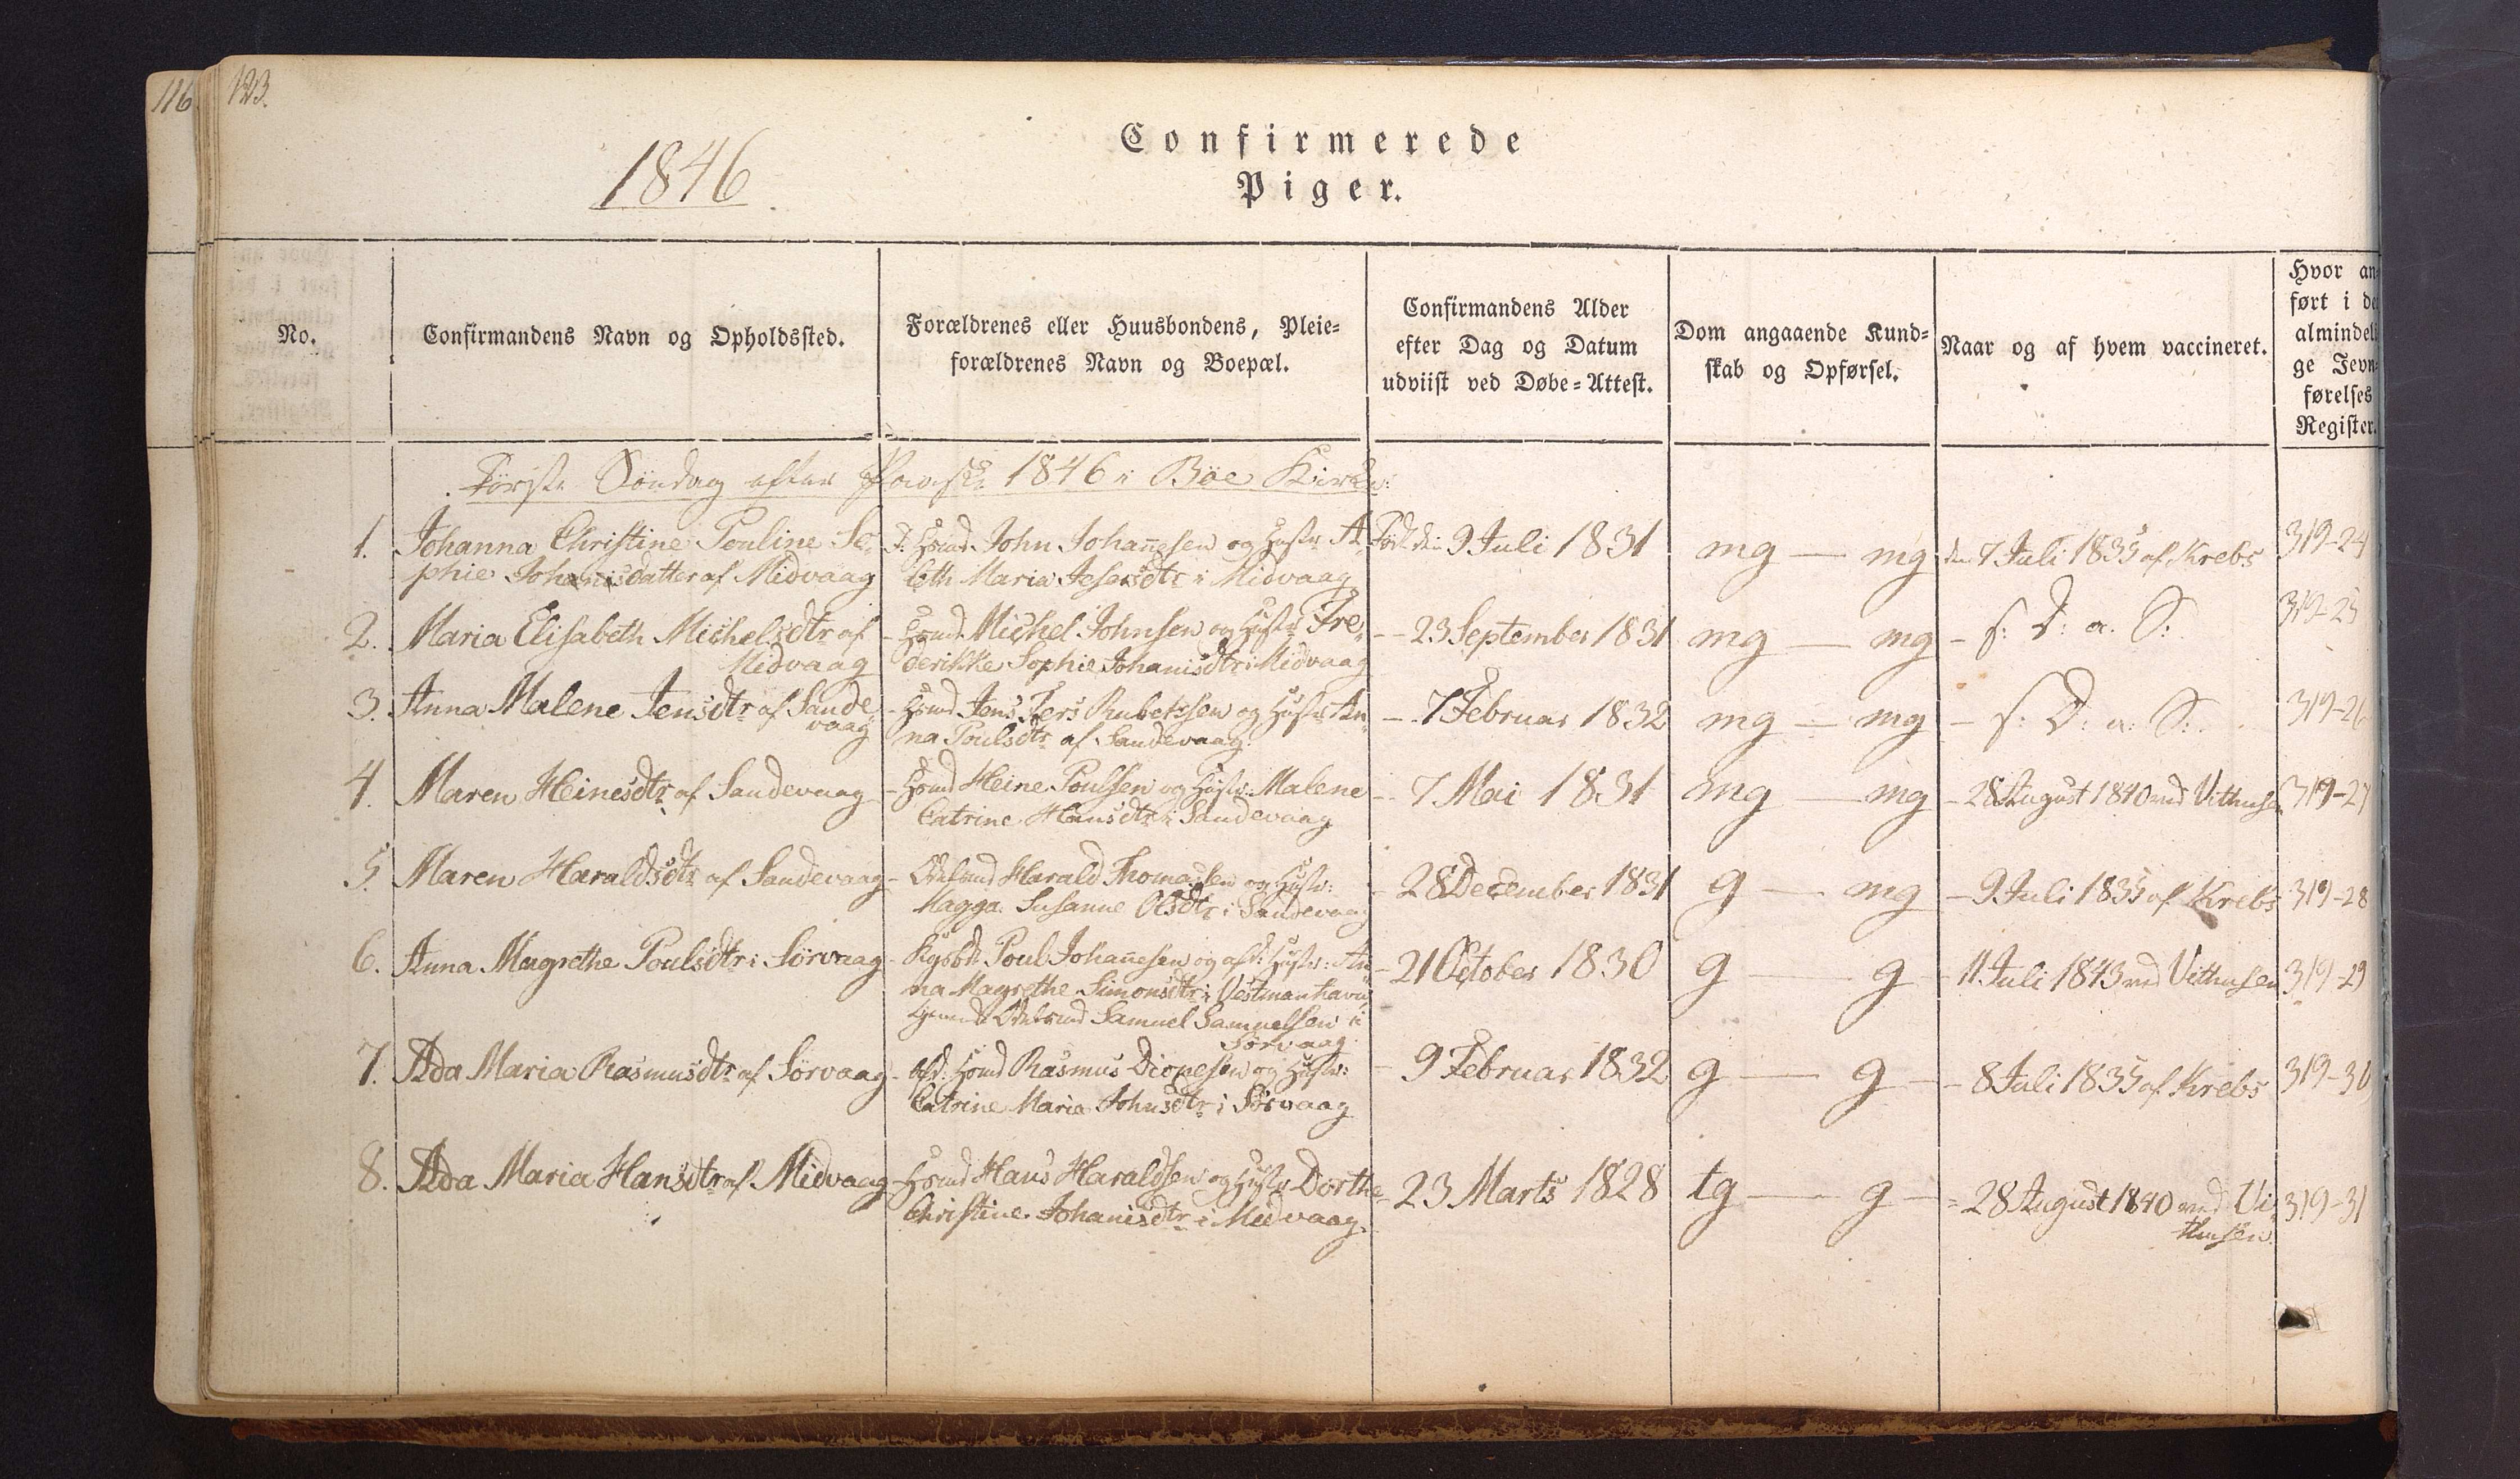 116
123.
1846
Confirmerede
Piger.
No.
Confirmandens Navn og Opholdssted.
Forældrenes eller Huusbondens, Pleie-
forældrenes Navn og Boepæl.
Confirmandens Alder
efter Dag og Datum
udviist ved Døbe-Attest.
Dom angaaende Kund-
skab og Opførsel.
Naar og af hvem vaccineret.
Hvor an-
ført i de
almindeli
ge Jevn-
førelses
Register.
Første Søndag efter Paaske 1846 i Böe Kirke:
1. Johanna Christine Pouline So-
phie Johanisdatter af Midvaag
Hsmd. John Johannesen og Hustr A-
beth Maria Jesersdtr i Midvaag
Født den 9 Juli 1831
mg — mg
den 7 Juli 1835 af Krebs
319-24
2. Maria Elisabeth Michelsdtr af
Midvaag
- Hsmd. Michel Johnsen og Hustr Fre-
derikke Sophie Johanisdtr i Midvaag
- 23 September 1831
mg — mg
- s: D: a. S:
319-25
3. Anna Malene Jensdtr af Sande
vaag
- Hsmd Jens Pers Rubeksen og Hustr An-
na Poulsdtr af Sandevaag.
- 7 Februar 1832
mg — mg
- s: D: a: S:
319-26
4. Maren Heinesdtr af Sandevaag
- Hsmd Heine Poulsen og Hustr: Malene
Catrine Hansdtr i Sandevaag
- 7 Mai 1831
mg — mg
- 28 August 1840 ved Vithusen
319-27
5. Maren Haraldsdtr af Sandevaag
- Harald Thomasen og Hustr:
Magga Susanne Olsdtr i Sandevaag
- 28 December 1831
g — mg
- 9 Juli 1835 af Krebs
319-28
6. Anna Magrethe Poulsdtr i Sørvaag
- Poul Johannesen og afd: Hustr: An-
na Magrethe Simonsdtr i Vestmanhavn,
Samuel Samuelsen i
Sørvaag
- 21 October 1830
g — g
- 11 Juli 1843 ved Vithusen
319-29
7. Ada Maria Rasmusdtr af Sørvaag
- afd: Hsmd Rasmus Dionesen og Hustr:
Catrine Maria Johnsdtr i Sørvaag
- 9 Februar 1832
g — g
- 8 Juli 1835 af Krebs
319-30
8. Ada Maria Hansdtr af Midvaag
- Hsmd Hans Haraldsen og Hustr Dorthe
Christine Johanisdtr i Midvaag.
- 23 Marts 1828
tg — g
- 28 August 1840 ved Vi-
thusen.
319-31